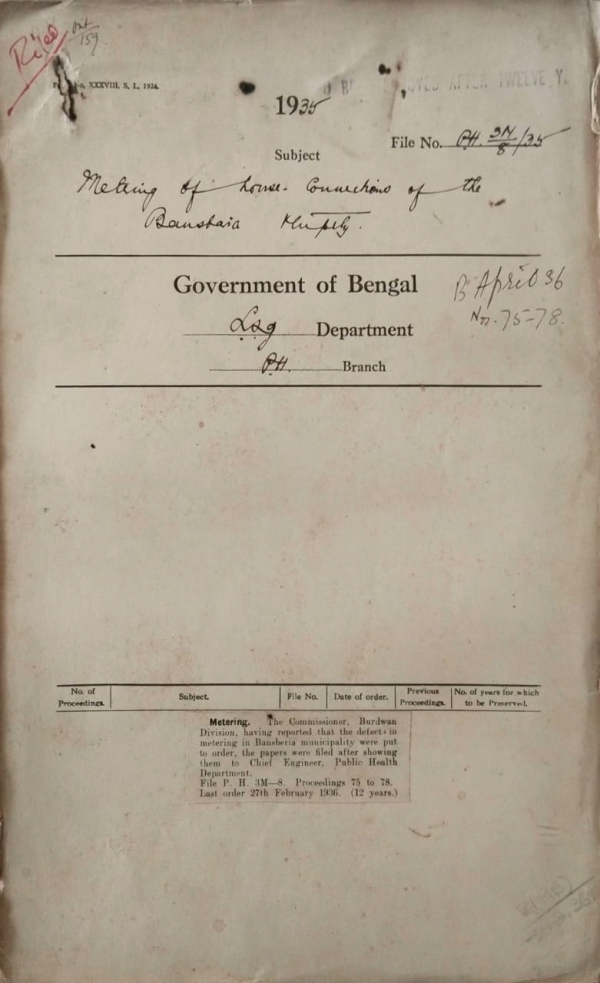 No. XXXVIII, S. L., 1924.
AFTER TWELVE Y
1935
File No. P.H. 3M/8/35
Subject
Metering of house-connections of the
Bansbaria Mupty.
Government of Bengal
B April 36
Lsg Department
No. 75-78.
P.H. Branch
No. of Proceedings. Subject. File No. Date of order. Previous Proceedings. No. of years for which to be Preserved.
Metering. The Commissioner, Burdwan
Division, having reported that the defects in
metering in Bansberia municipality were put
to order, the papers were filed after showing
them to Chief Engineer, Public Health
Department.
File P. H. 3M—8. Proceedings 75 to 78.
Last order 27th February 1936. (12 years.)